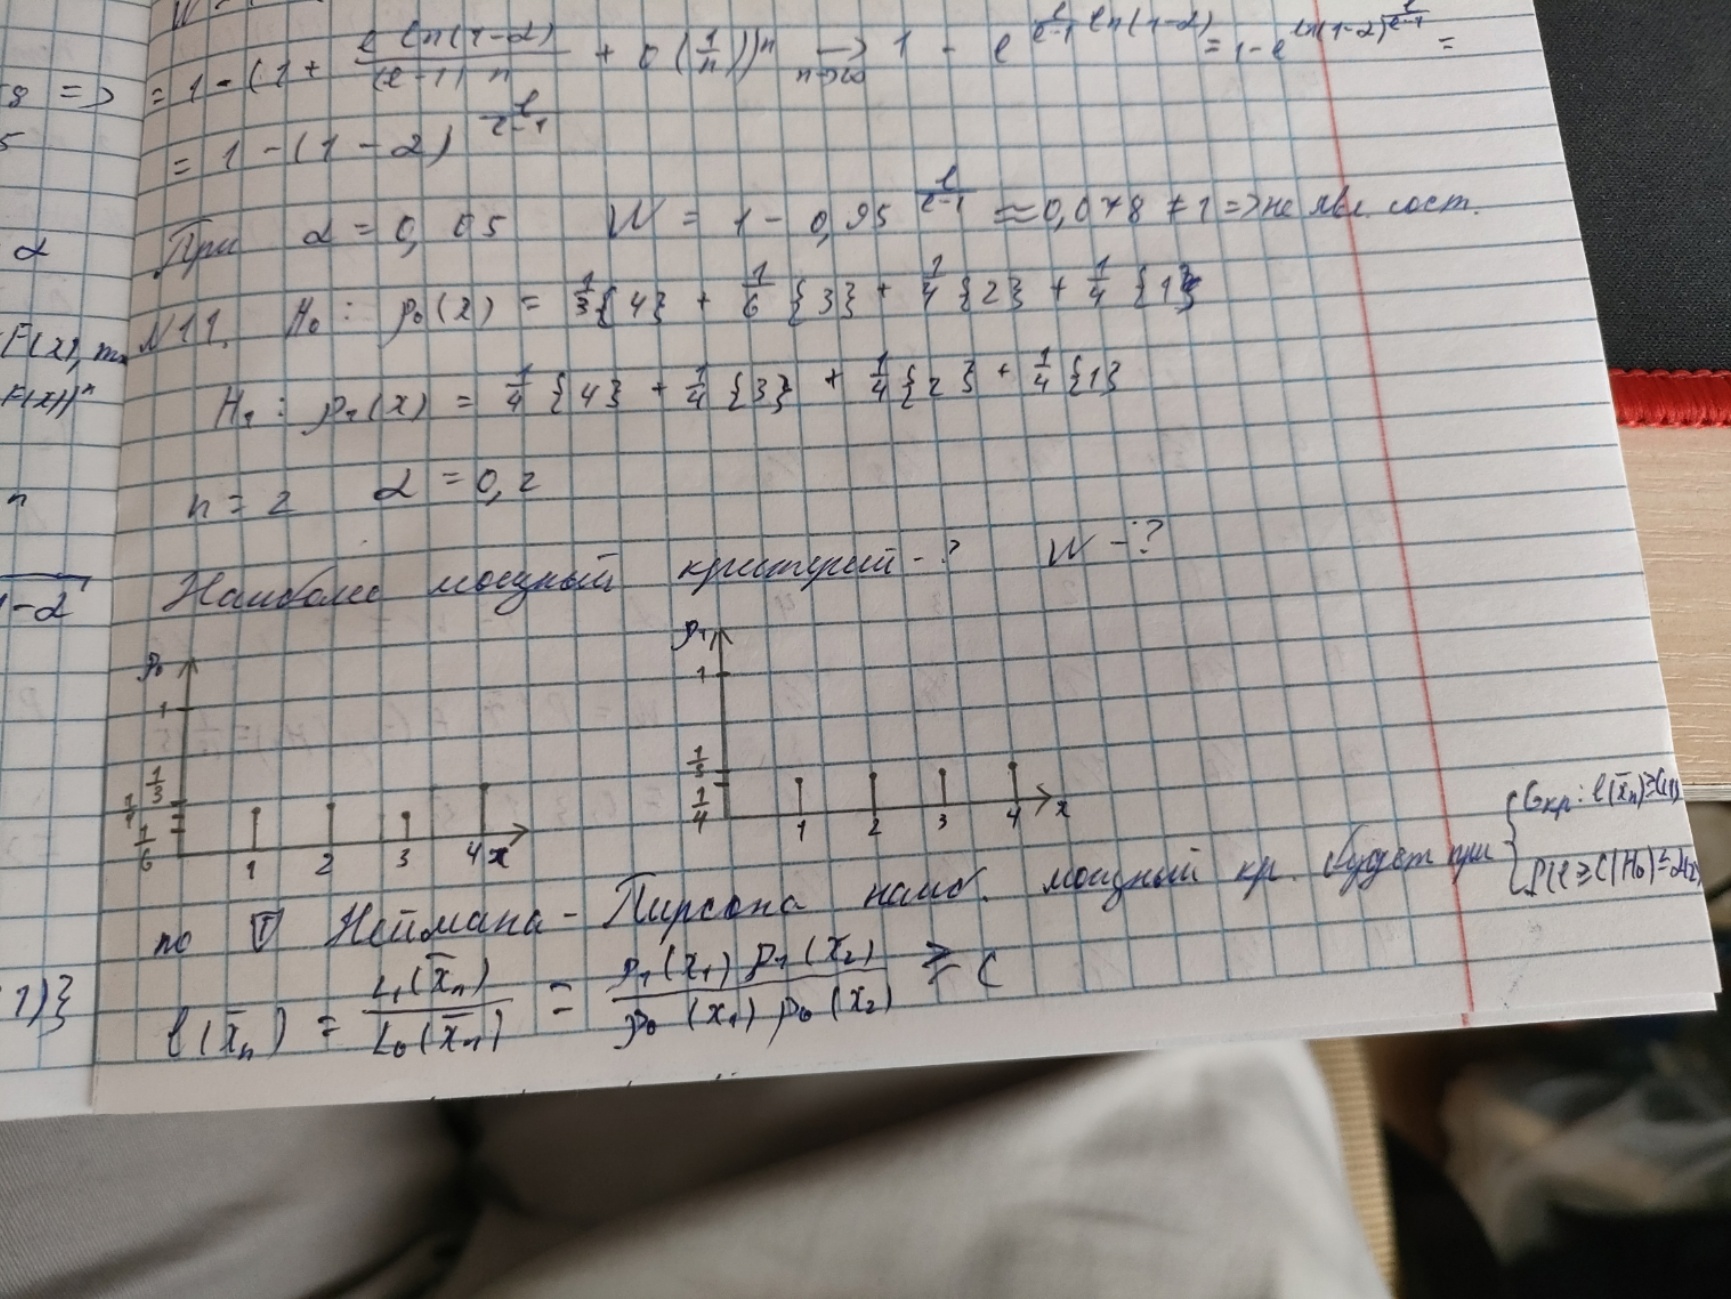 8 =>
5
α
F(x), т.
F(x))ⁿ
n
1-α
1)}
= 1 - (1 + e ln(1-α) / (e-1) n + o(1/n))ⁿ → n→∞ 1 - e^(e/(e-1) ln(1-α)) = 1 - e^(ln(1-α)^(e/(e-1))) =
= 1 - (1-α)^(e/(e-1))
При α = 0,05 W = 1 - 0,95^(e/(e-1)) ≈ 0,078 ≠ 1 => не явл. сост.
N11. H₀ : p₀(x) = 1/3 {4} + 1/6 {3} + 1/4 {2} + 1/4 {1}
H₁ : p₁(x) = 1/4 {4} + 1/4 {3} + 1/4 {2} + 1/4 {1}
n = 2 α = 0,2
Наиболее мощный критерий - ? W - ?
p₀ 1 1/3 1/4 1/6 1 2 3 4 x
p₁ 1 1/3 1/4 1 2 3 4 x
по T Неймана - Пирсона наиб. мощный кр. будет при { Gкр: l(x̄ₙ) ≥ C (1)
P(l ≥ C | H₀) ≤ α (2)
l(x̄ₙ) = L₁(x̄ₙ) / L₀(x̄ₙ) = p₁(x₁) p₁(x₂) / p₀(x₁) p₀(x₂) ≥ C